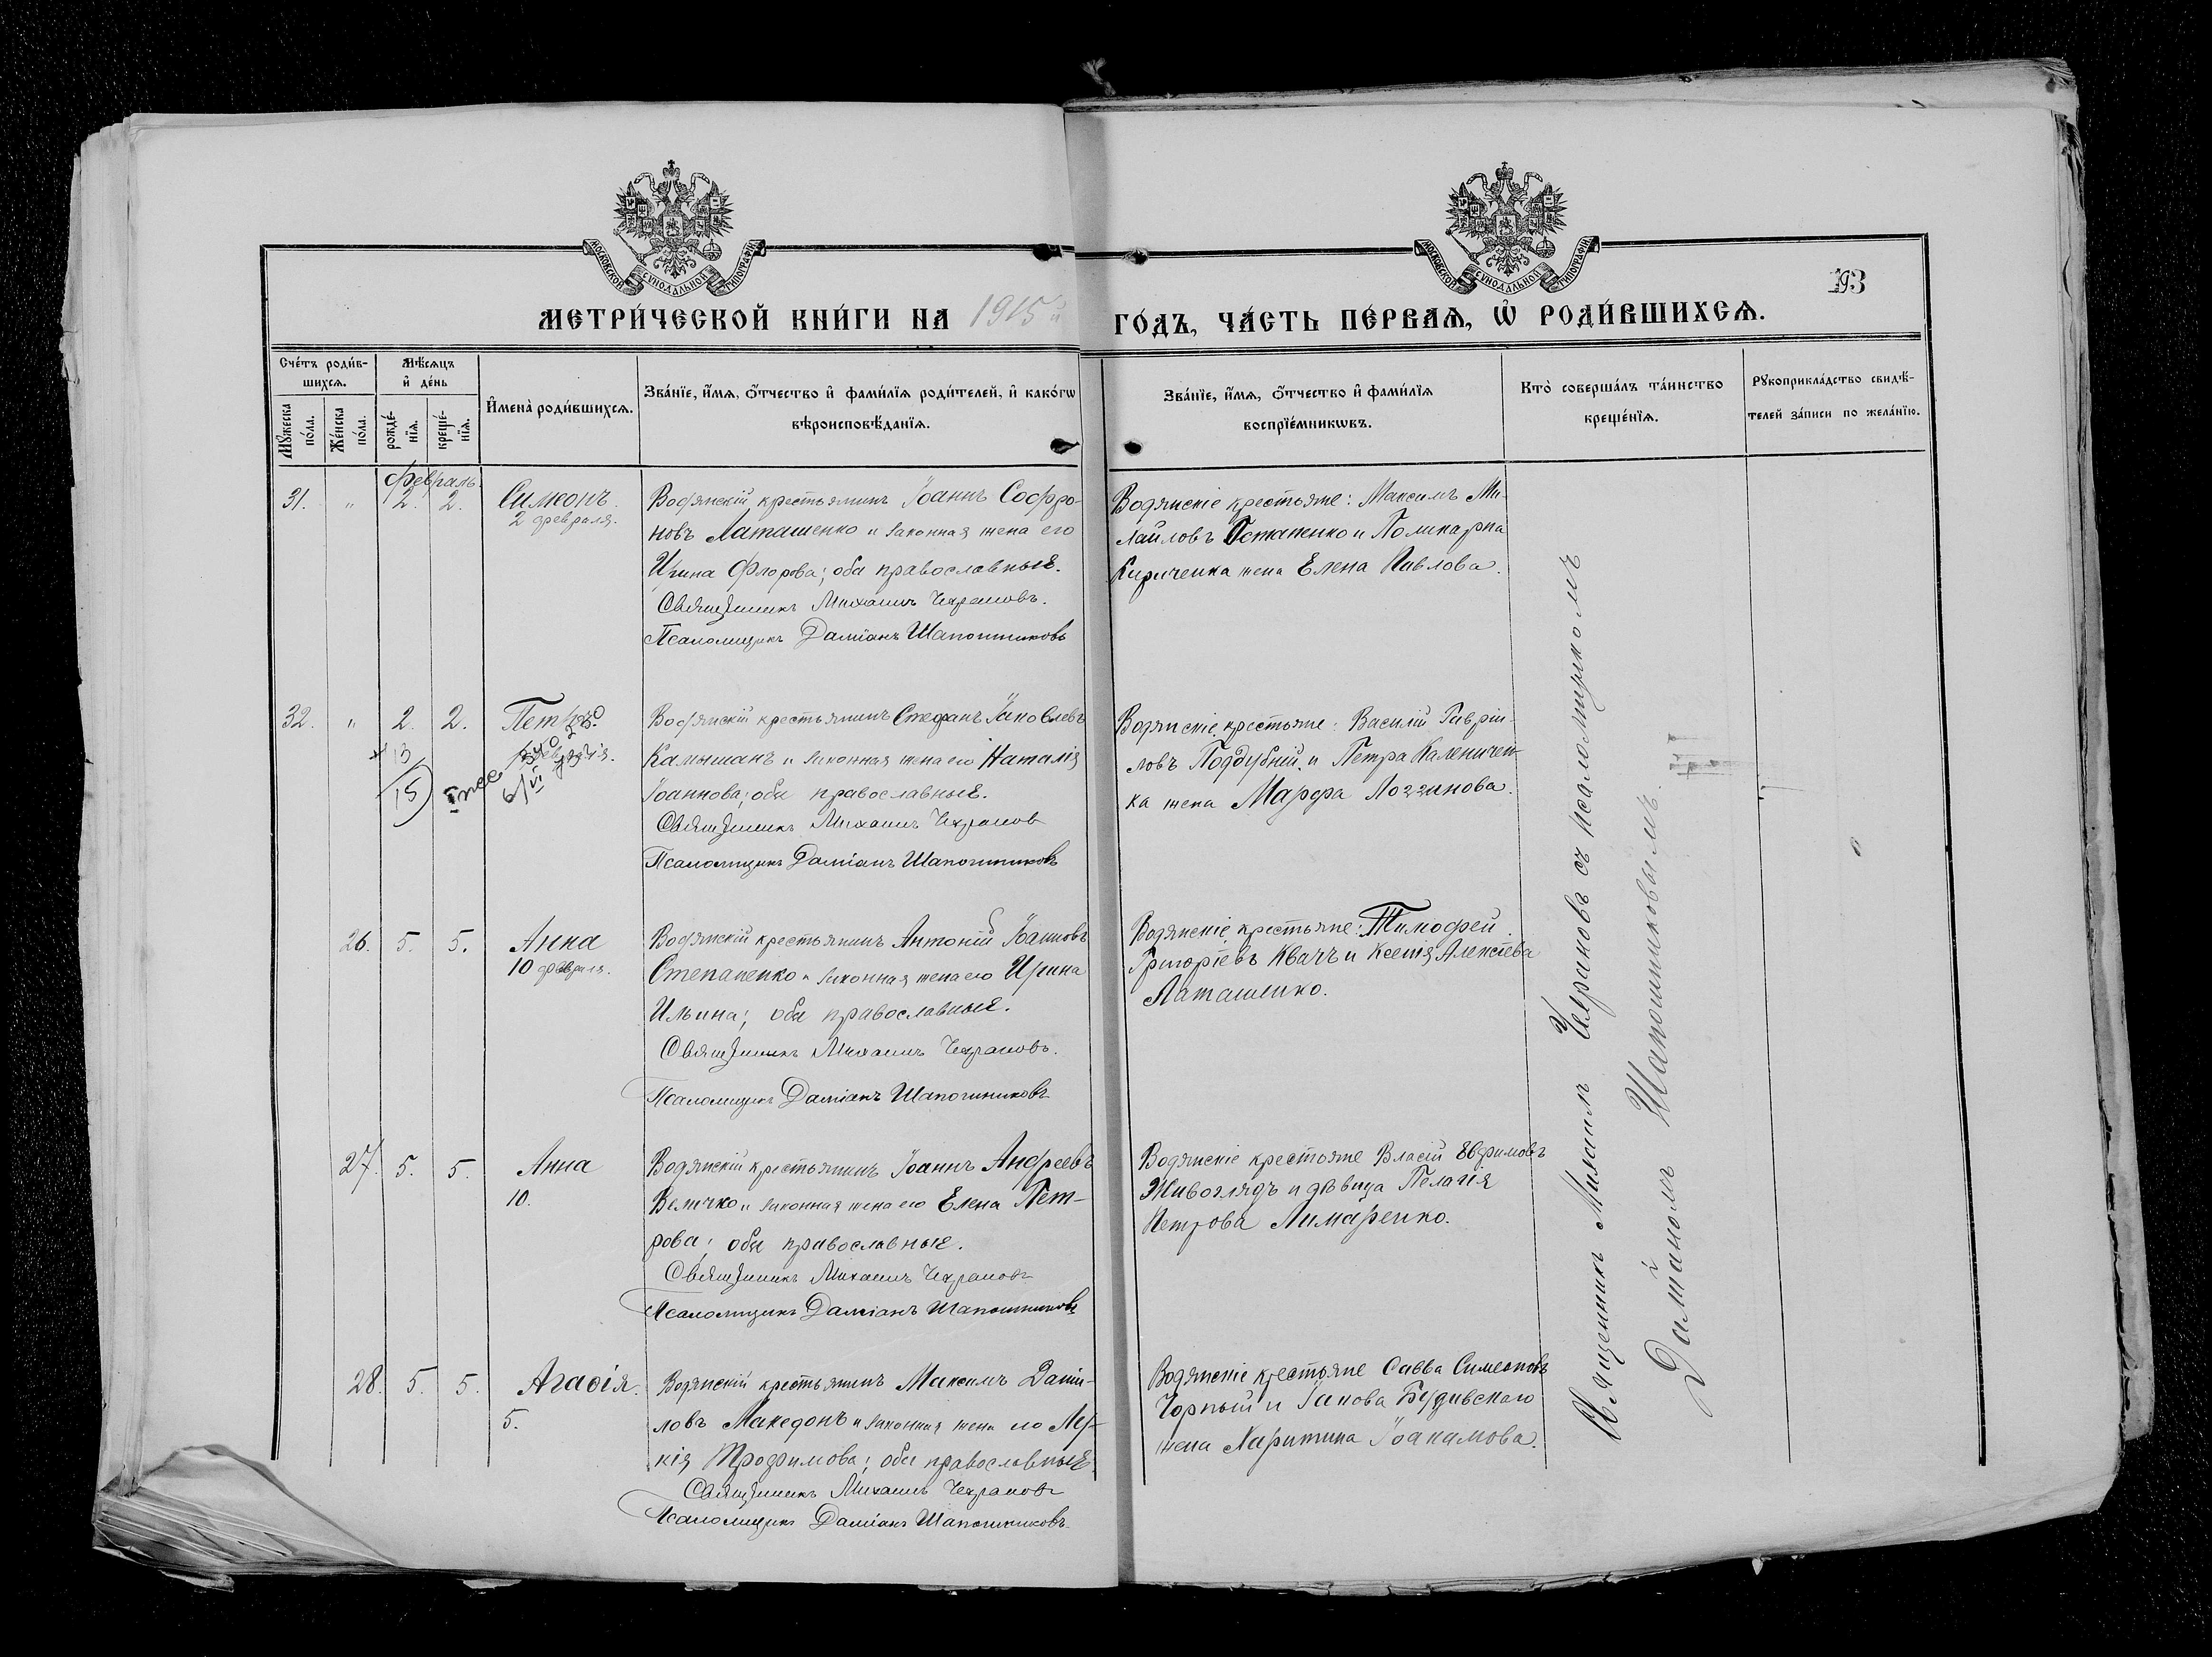 МОСКОВСКОЙ СѴНОДАЛЬНОЙ ТИПОГРАФІИ
МОСКОВСКОЙ СѴНОДАЛЬНОЙ ТИПОГРАФІИ
193
МЕТРИ́ЧЕСКОЙ КНИ́ГИ НА 1915й ГО́ДЪ, ЧА́СТЬ ПЕ́РВАѦ, Ѡ҆ РОДИ́ВШИХСѦ.
Сче́тъ роди́в-
шихсѧ.
Мꙋ́жеска
по́ла.
Же́нска
по́ла.
Мѣ́сѧцъ
и҆ де́нь
рожде́-
нїѧ.
креще́-
нїѧ.
И҆мена̀ роди́вшихсѧ.
Зва́нїе, и҆́мѧ, ѻ҆́тчество и҆ фами́лїѧ роди́телей, и҆ како́гѡ
вѣроисповѣ́данїѧ.
Зва́нїе, и҆́мѧ, ѻ҆́тчество и҆ фами́лїѧ
воспрїе́мникѡвъ.
Кто̀ соверша́лъ та́инство
креще́нїѧ.
Рꙋкоприкла́дство свидѣ́-
телей за́писи по жела́нїю.
февраль
31. " 2. 2.
Симеонъ.
2 февраля.
Водянскій крестьянинъ Іоаннъ Софро-
новъ Латашенко и законная жена его
Ирина Флорова; оба православные.
Священникъ Михаилъ Чехрановъ.
Псаломщикъ Даміанъ Шапошниковъ
Водянскіе крестьяне: Максимъ Ми-
хаиловъ Остапенко и Поликарпа
Кириченка жена Елена Павлова.
32. " 2. 2.
Петръ.
13
15
6/VI
Водянскій крестьянинъ Стефанъ Іаковлевъ
Камышанъ и законная жена его Наталія
Іоаннова; оба православные.
Священникъ Михаилъ Чехранов
Псаломщикъ Даміанъ Шапошниковъ
Водянскіе крестьяне: Василій Гавріи-
ловъ Поддубній и Петра Каленичен-
ка жена Марфа Логгинова.
26. 5. 5.
Анна
10 февраля.
Водянскій крестьянинъ Антоній Іоанновъ
Степаненко и законная жена его Ирина
Ильина; оба православные.
Священникъ Михаилъ Чехрановъ.
Псаломщикъ Даміанъ Шапошниковъ
Водянскіе крестьяне: Тимофей
Григоріевъ Квачъ и Ксенія Алексіева
Латашенко.
27. 5. 5.
Анна
10.
Водянскій крестьянинъ Іоаннъ Андреевъ
Величко и законная жена его Елена Пет-
рова; оба православные.
Священникъ Михаилъ Чехрановъ
Псаломщикъ Даміанъ Шапошниковъ
Водянскіе крестьяне Власій Евфимовъ
Живоглядъ и дѣвица Пелагія
Петрова Лимаренко.
28. 5. 5.
Агаѳія.
5.
Водянскій крестьянинъ Максимъ Даніи-
ловъ Македонъ и законная жена его Лу-
кія Трофимова; оба православные
Священникъ Михаилъ Чехрановъ
Псаломщикъ Даміанъ Шапошниковъ
Водянскіе крестьяне Савва Симеоновъ
Чорный и Іакова
жена Харитина Іоакимова.
Священникъ Михаилъ Чехрановъ съ псаломщикомъ
Даміаномъ Шапошниковымъ.